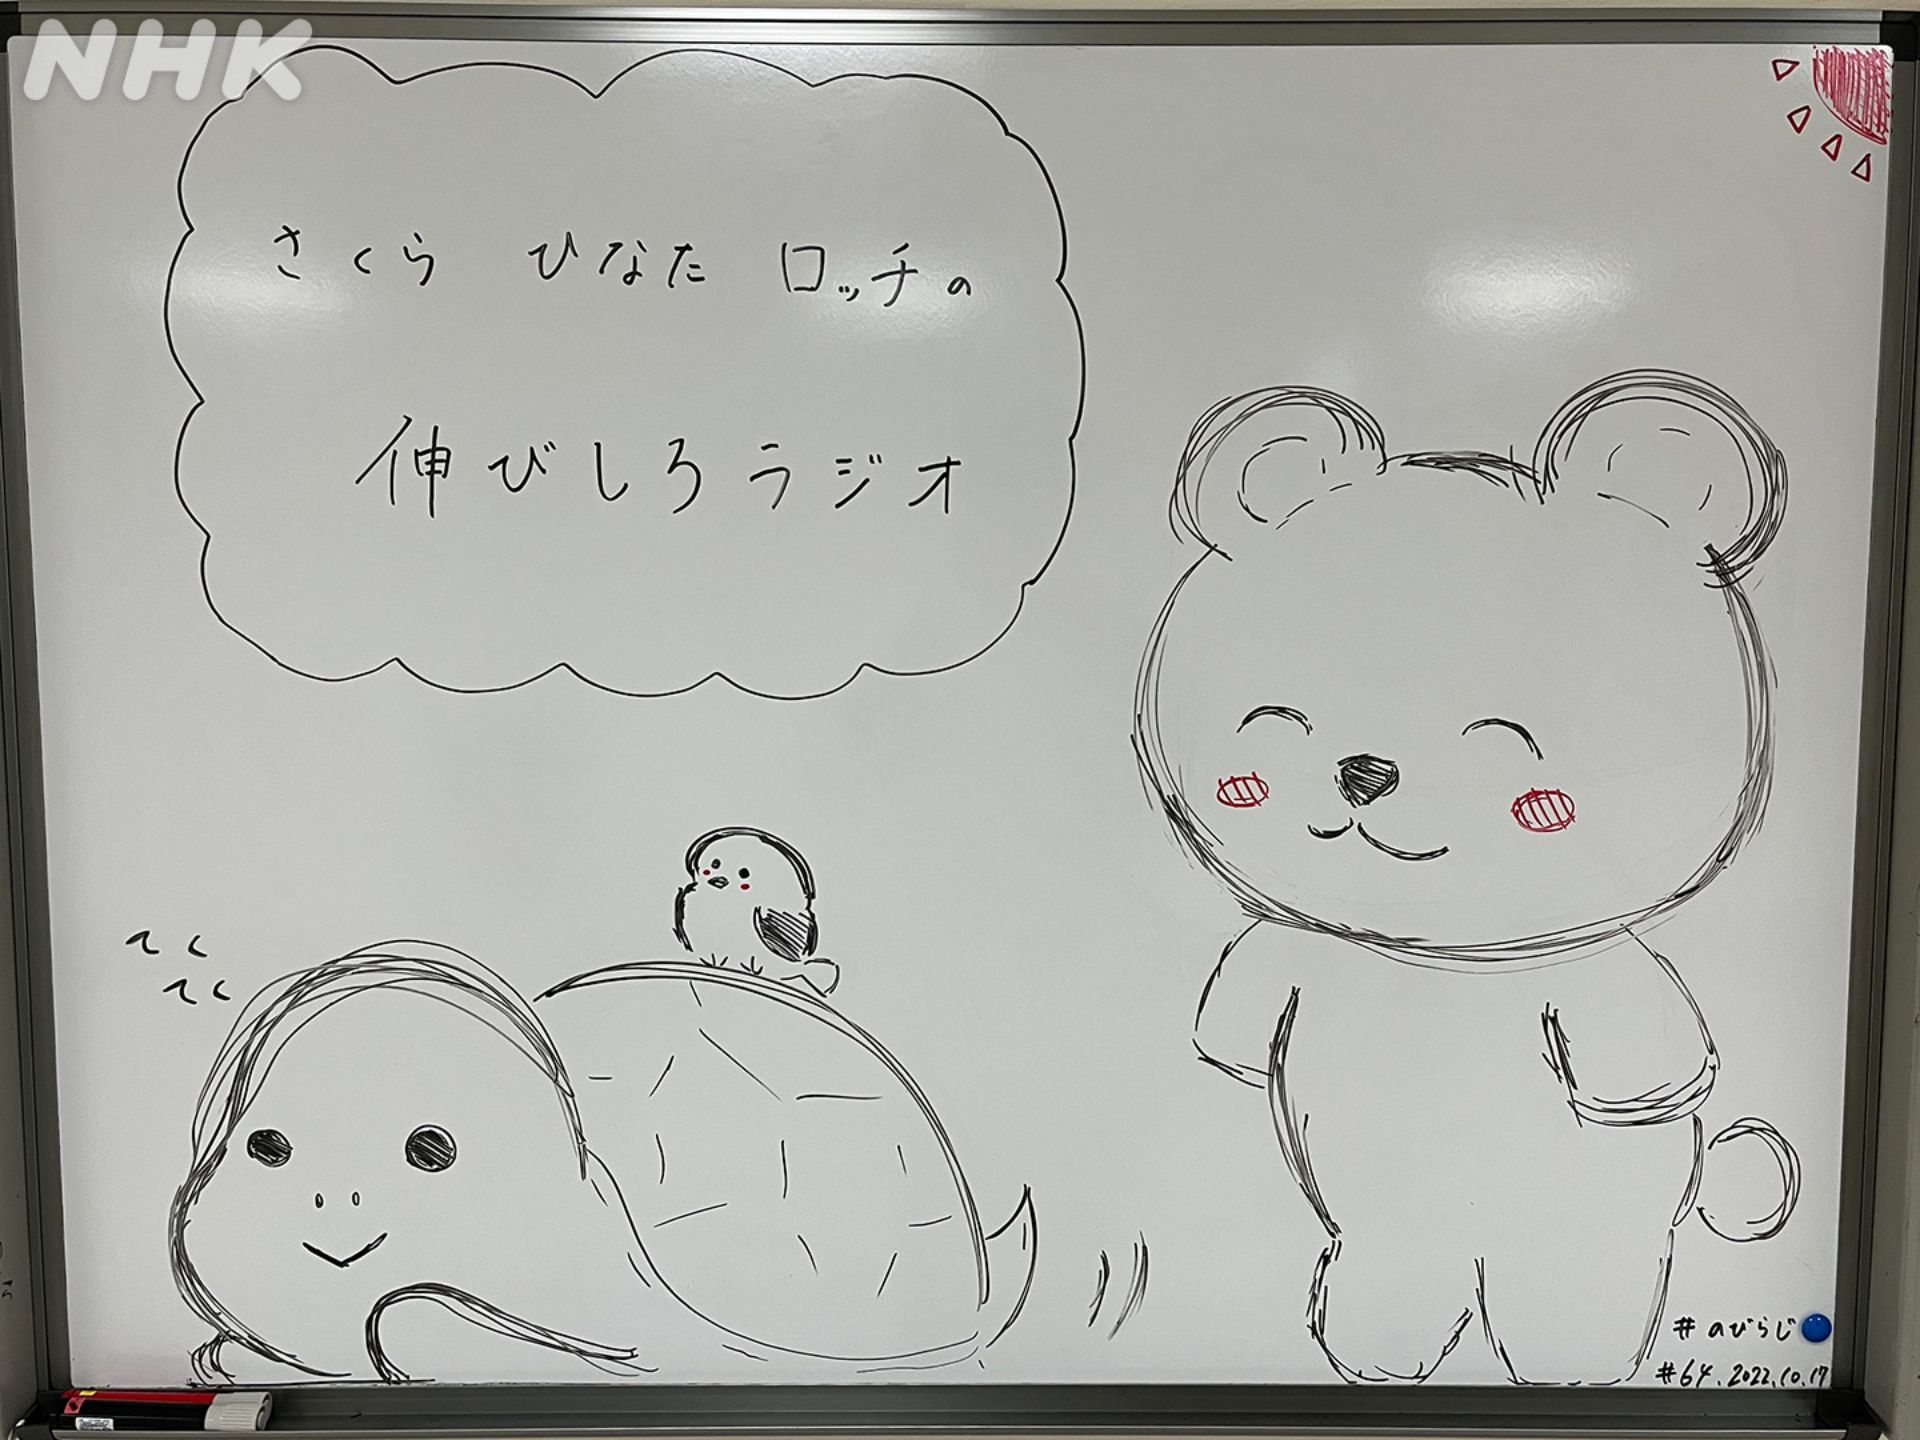 NHK
さくら ひなた ロッチの
伸びしろラジオ
てく
てく
#のびらじ
#64.2022.10.17